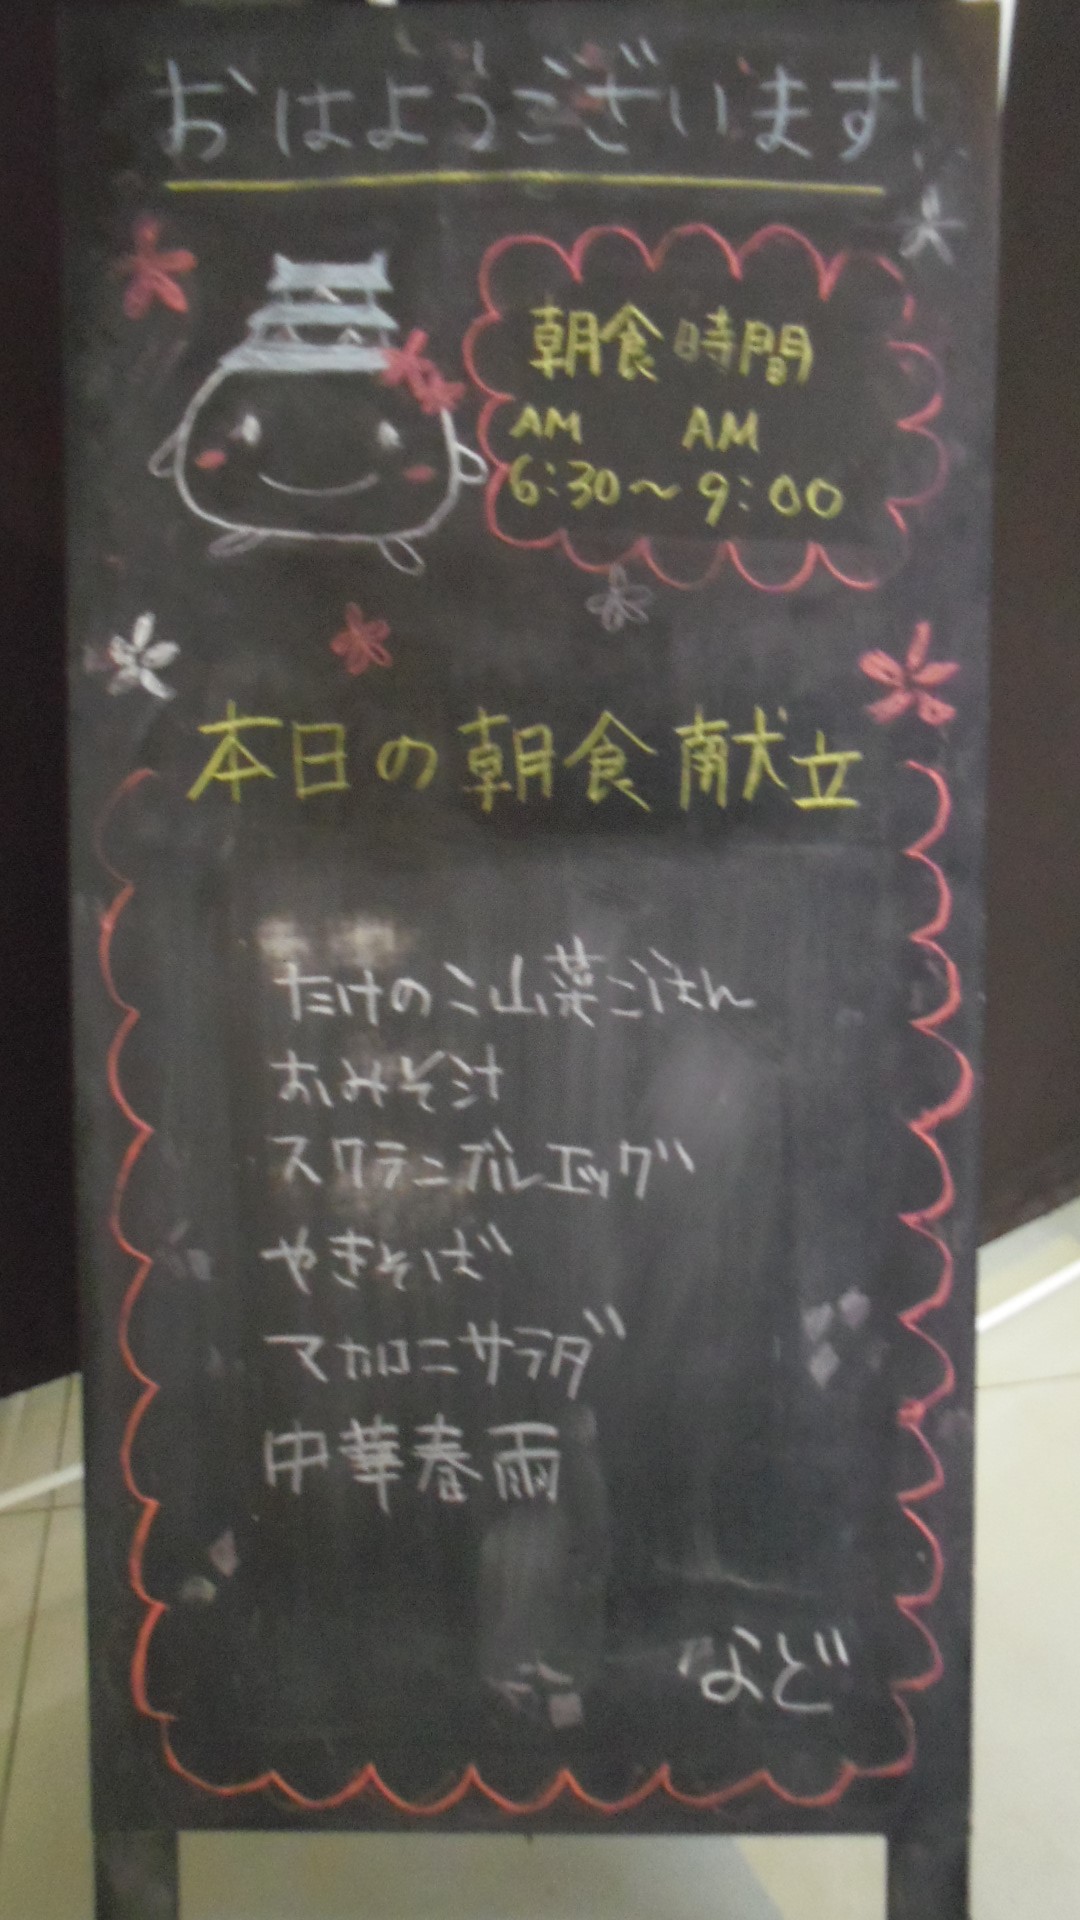 おはようございます!
朝食時間
AM AM
6:30〜9:00
本日の朝食献立
たけのこ山菜ごはん
おみそ汁
スクランブルエッグ
やきそば
マカロニサラダ
中華春雨
など